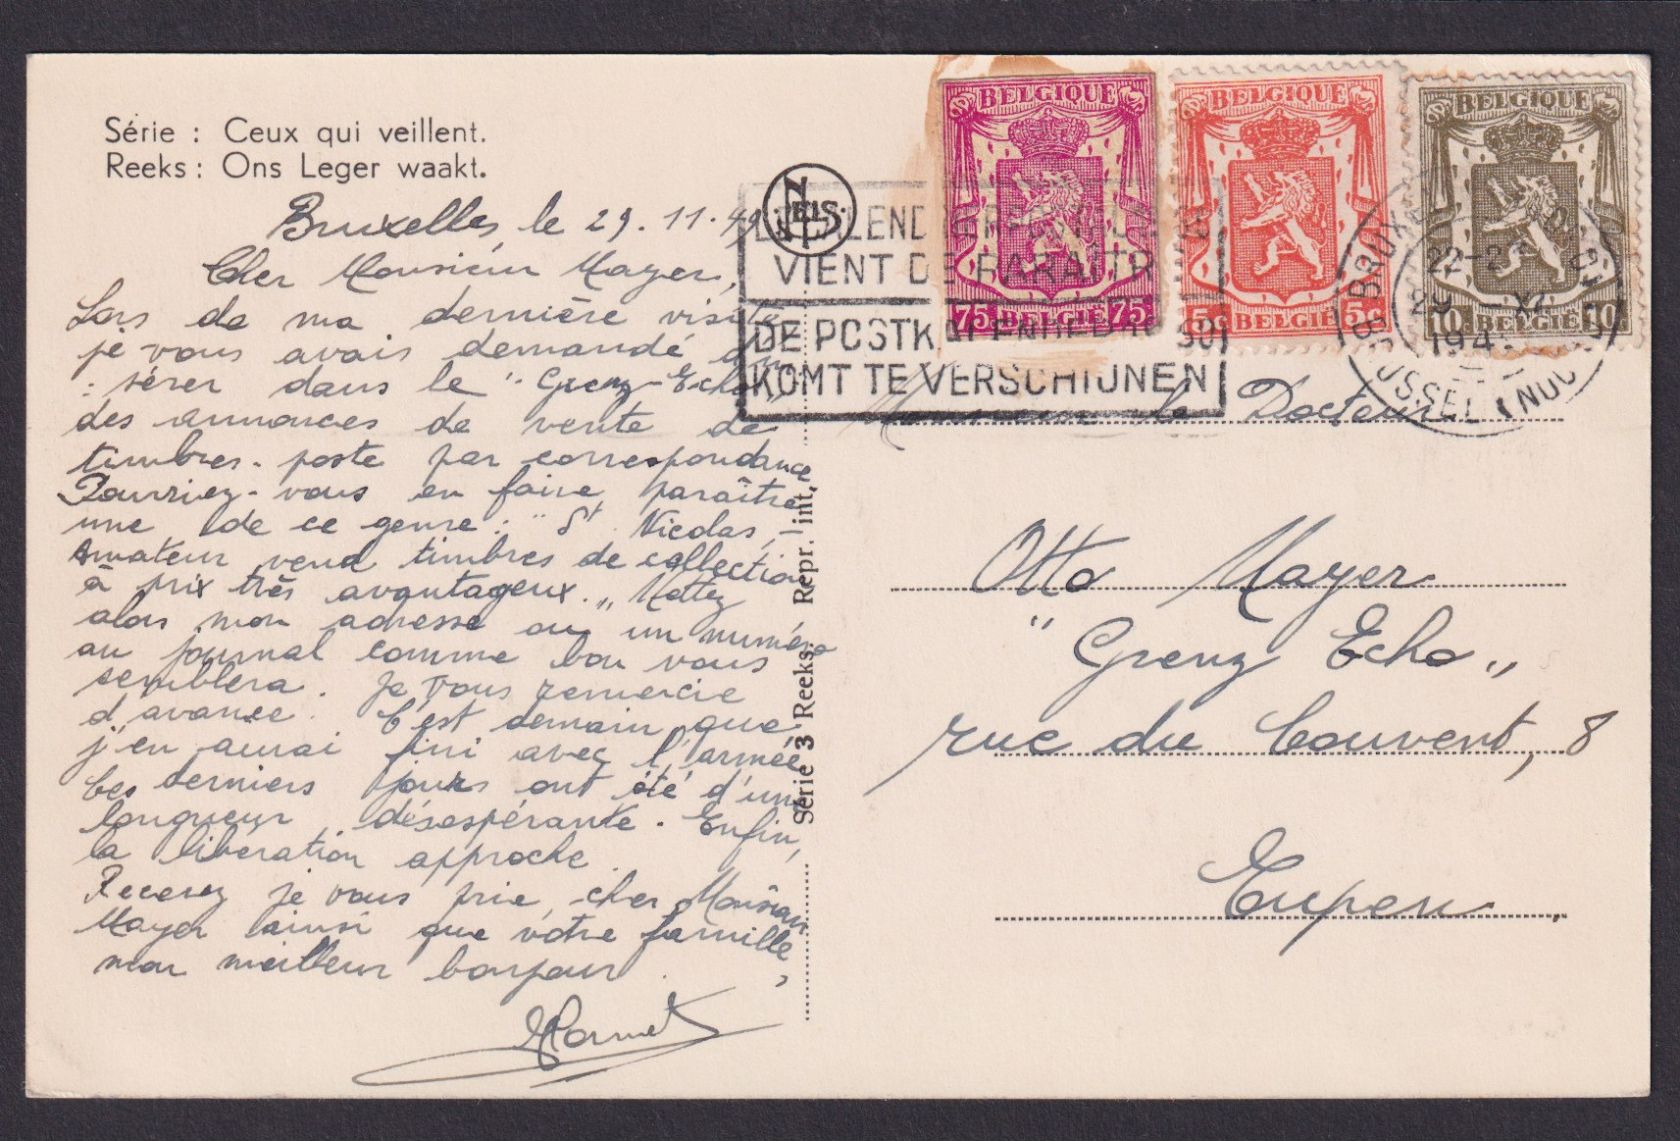 Série : Ceux qui veillent.
Reeks : Ons Leger waakt.
Bruxelles, le 29.11.49
Cher Monsieur Mayer,
Lors de ma dernière visite
je vous avais demandé d'in-
sérer dans le "Grenz-Echo"
des annonces de vente de
timbres-poste par correspondance
Pourriez-vous en faire paraître
une de ce genre : "St Nicolas, -
Amateur vend timbres de collection
à prix très avantageux." Mettez
alors mon adresse ou un numéro
au journal comme bon vous
semblera. Je vous remercie
d'avance. C'est demain que
j'en aurai fini avec l'armée
Ces derniers jours ont été d'une
longueur désespérante. Enfin,
la libération approche.
Recevez je vous prie, cher Monsieur
Mayer ainsi que votre famille,
mon meilleur bonjour.
Série 3 Reeks. Repr. int.
NELS
BELGIQUE
75 BELGIË 75
BELGIQUE
5c BELGIË 5c
BELGIQUE
10 BELGIË 10
VIENT DE PARAITR
KOMT TE VERSCHIJNEN
29 -XI
194
Monsieur le Docteur
Otto Mayer
"Grenz Echo"
rue du Couvent, 8
Eupen.